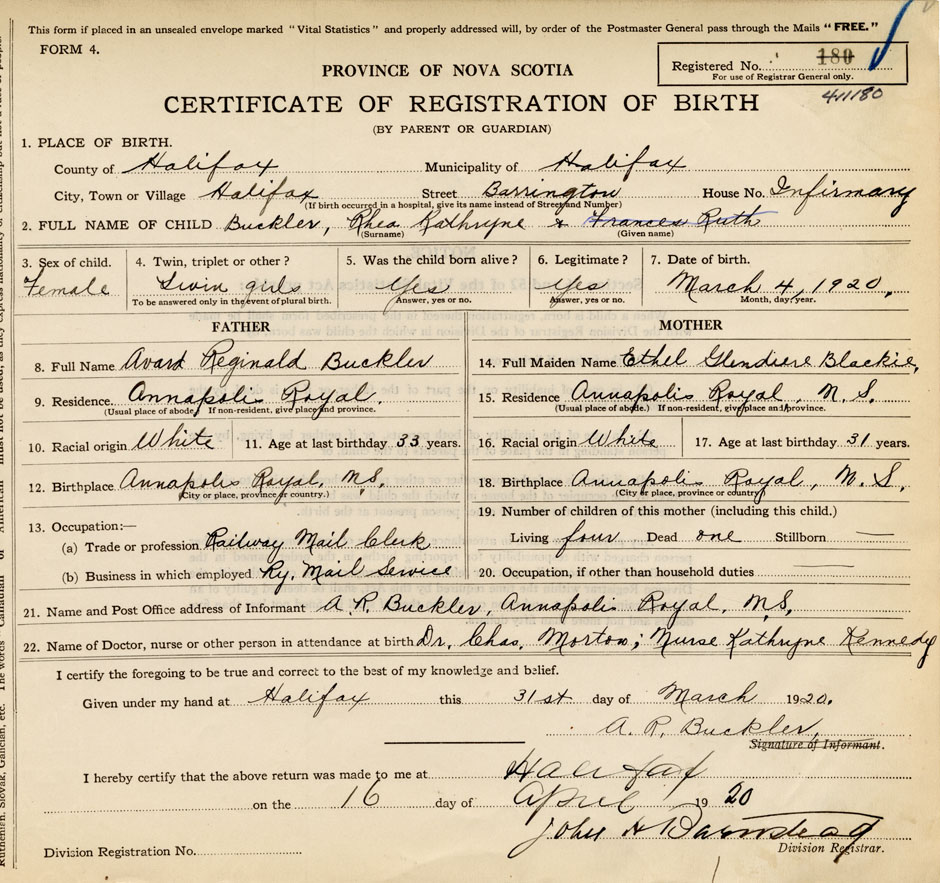 This form if placed in an unsealed envelope marked "Vital Statistics" and properly addressed will, by order of the Postmaster General pass through the Mails "FREE."
FORM 4.
Registered No. 180
For use of Registrar General only.
411180
PROVINCE OF NOVA SCOTIA
CERTIFICATE OF REGISTRATION OF BIRTH
(BY PARENT OR GUARDIAN)
1. PLACE OF BIRTH.
County of Halifax Municipality of Halifax
City, Town or Village Halifax Street Barrington House No. Infirmary
(If birth occurred in a hospital, give its name instead of Street and Number)
2. FULL NAME OF CHILD Buckler, Rhea Kathryne & Frances Ruth
(Surname) (Given name)
3. Sex of child. 4. Twin, triplet or other? 5. Was the child born alive? 6. Legitimate? 7. Date of birth.
Female Twin girls Yes Yes March 4, 1920,
To be answered only in the event of plural birth. Answer, yes or no. Answer, yes or no. Month, day, year.
FATHER
8. Full Name Avard Reginald Buckler
9. Residence. Annapolis Royal.
(Usual place of abode. If non-resident, give place and province.
10. Racial origin White 11. Age at last birthday 33 years.
12. Birthplace Annapolis Royal, N.S.
(City or place, province or country.)
13. Occupation:—
(a) Trade or profession Railway Mail Clerk
(b) Business in which employed Ry. Mail Service
MOTHER
14. Full Maiden Name Ethel Glendiere Blackie,
15. Residence Annapolis Royal, N.S.
(Usual place of abode.) If non-resident, give place and province.
16. Racial origin White 17. Age at last birthday 31 years.
18. Birthplace Annapolis Royal, N.S.
(City or place, province or country)
19. Number of children of this mother (including this child.)
Living four Dead one Stillborn —
20. Occupation, if other than household duties —
21. Name and Post Office address of Informant A.R. Buckler, Annapolis Royal, N.S,
22. Name of Doctor, nurse or other person in attendance at birth Dr. Chas. Morton; Nurse Kathryne Kennedy
I certify the foregoing to be true and correct to the best of my knowledge and belief.
Given under my hand at Halifax this 31st day of March 1920.
A. R. Buckler,
Signature of Informant.
I hereby certify that the above return was made to me at Halifax
on the 16 day of April 1920
John H Barnstead
Division Registrar.
Division Registration No.